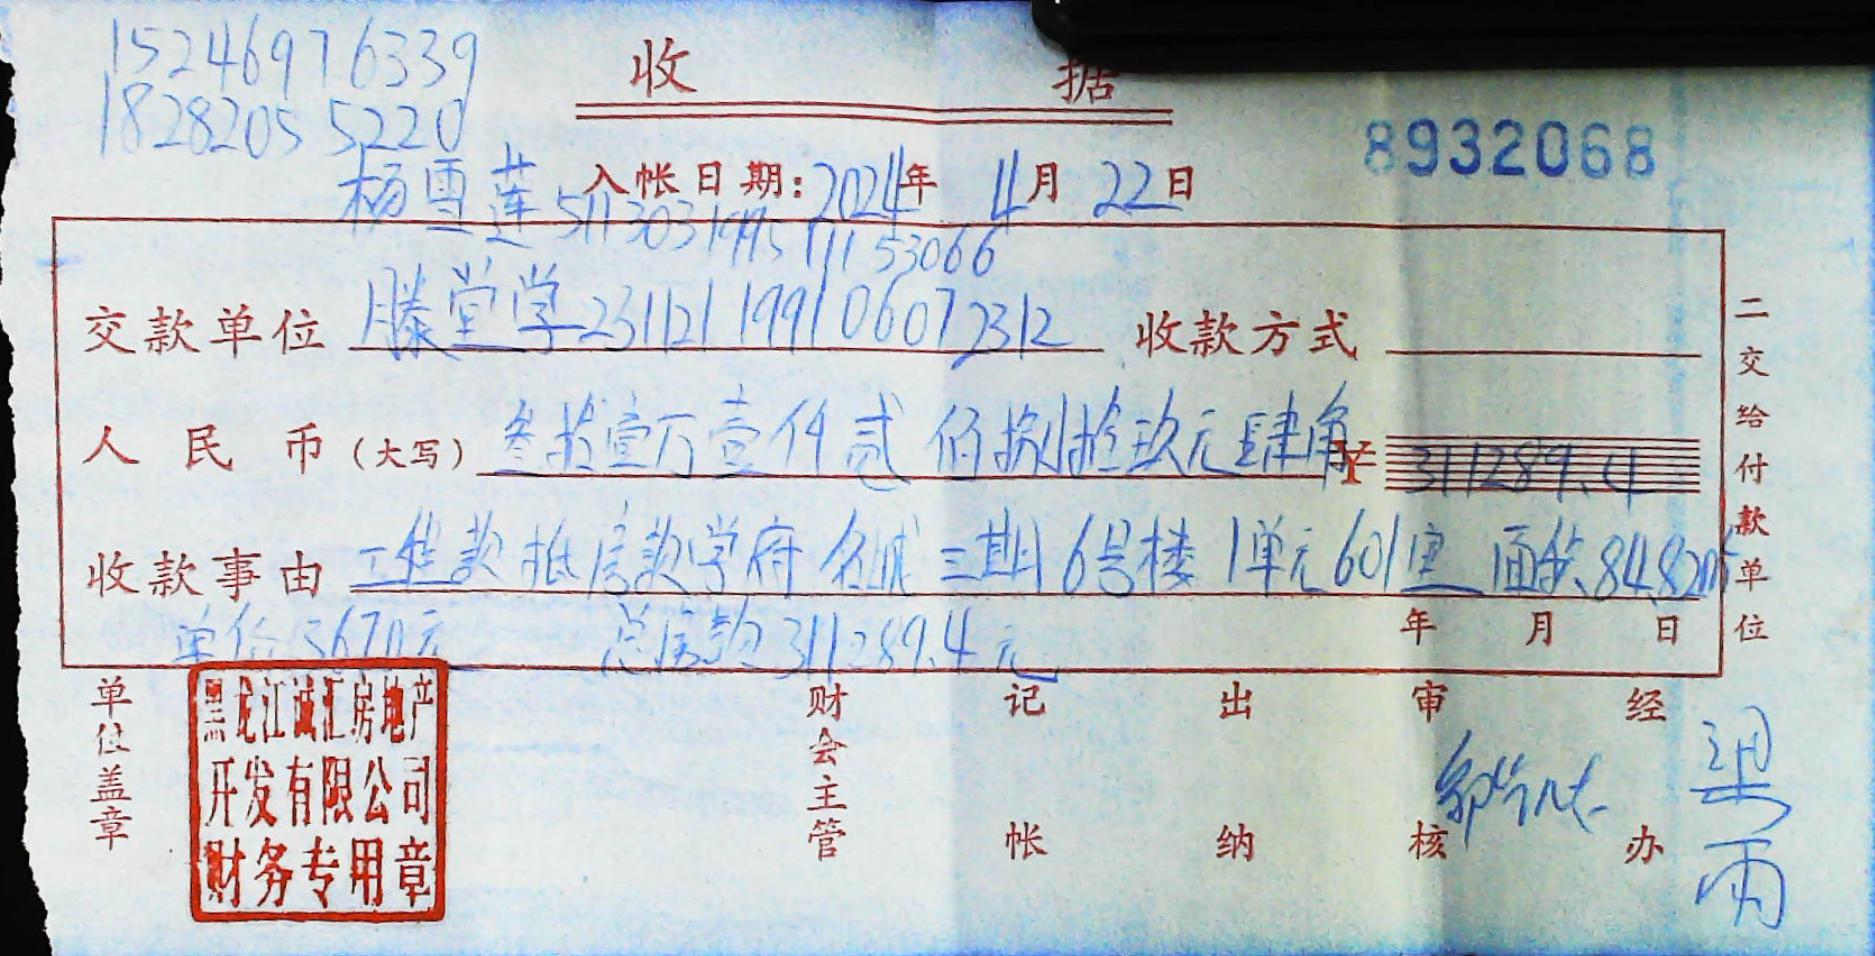 15246976339
18282055220
收 据
8932068
入帐日期：2024年 4月 22日
杨雪莲 511303199511153066
交款单位 滕堂学 231121199106072312 收款方式
人民币（大写）叁拾壹万壹仟贰佰捌拾玖元肆角 ¥ 311289.4
收款事由 工程款抵房款学府名城三期6号楼1单元601室 面积84.82m²
单价3670元 总房款311289.4元 年 月 日
二交给付款单位
单位盖章
黑龙江诚汇房地产
开发有限公司
财务专用章
财会主管 记帐 出纳 审核 经办
梁雨